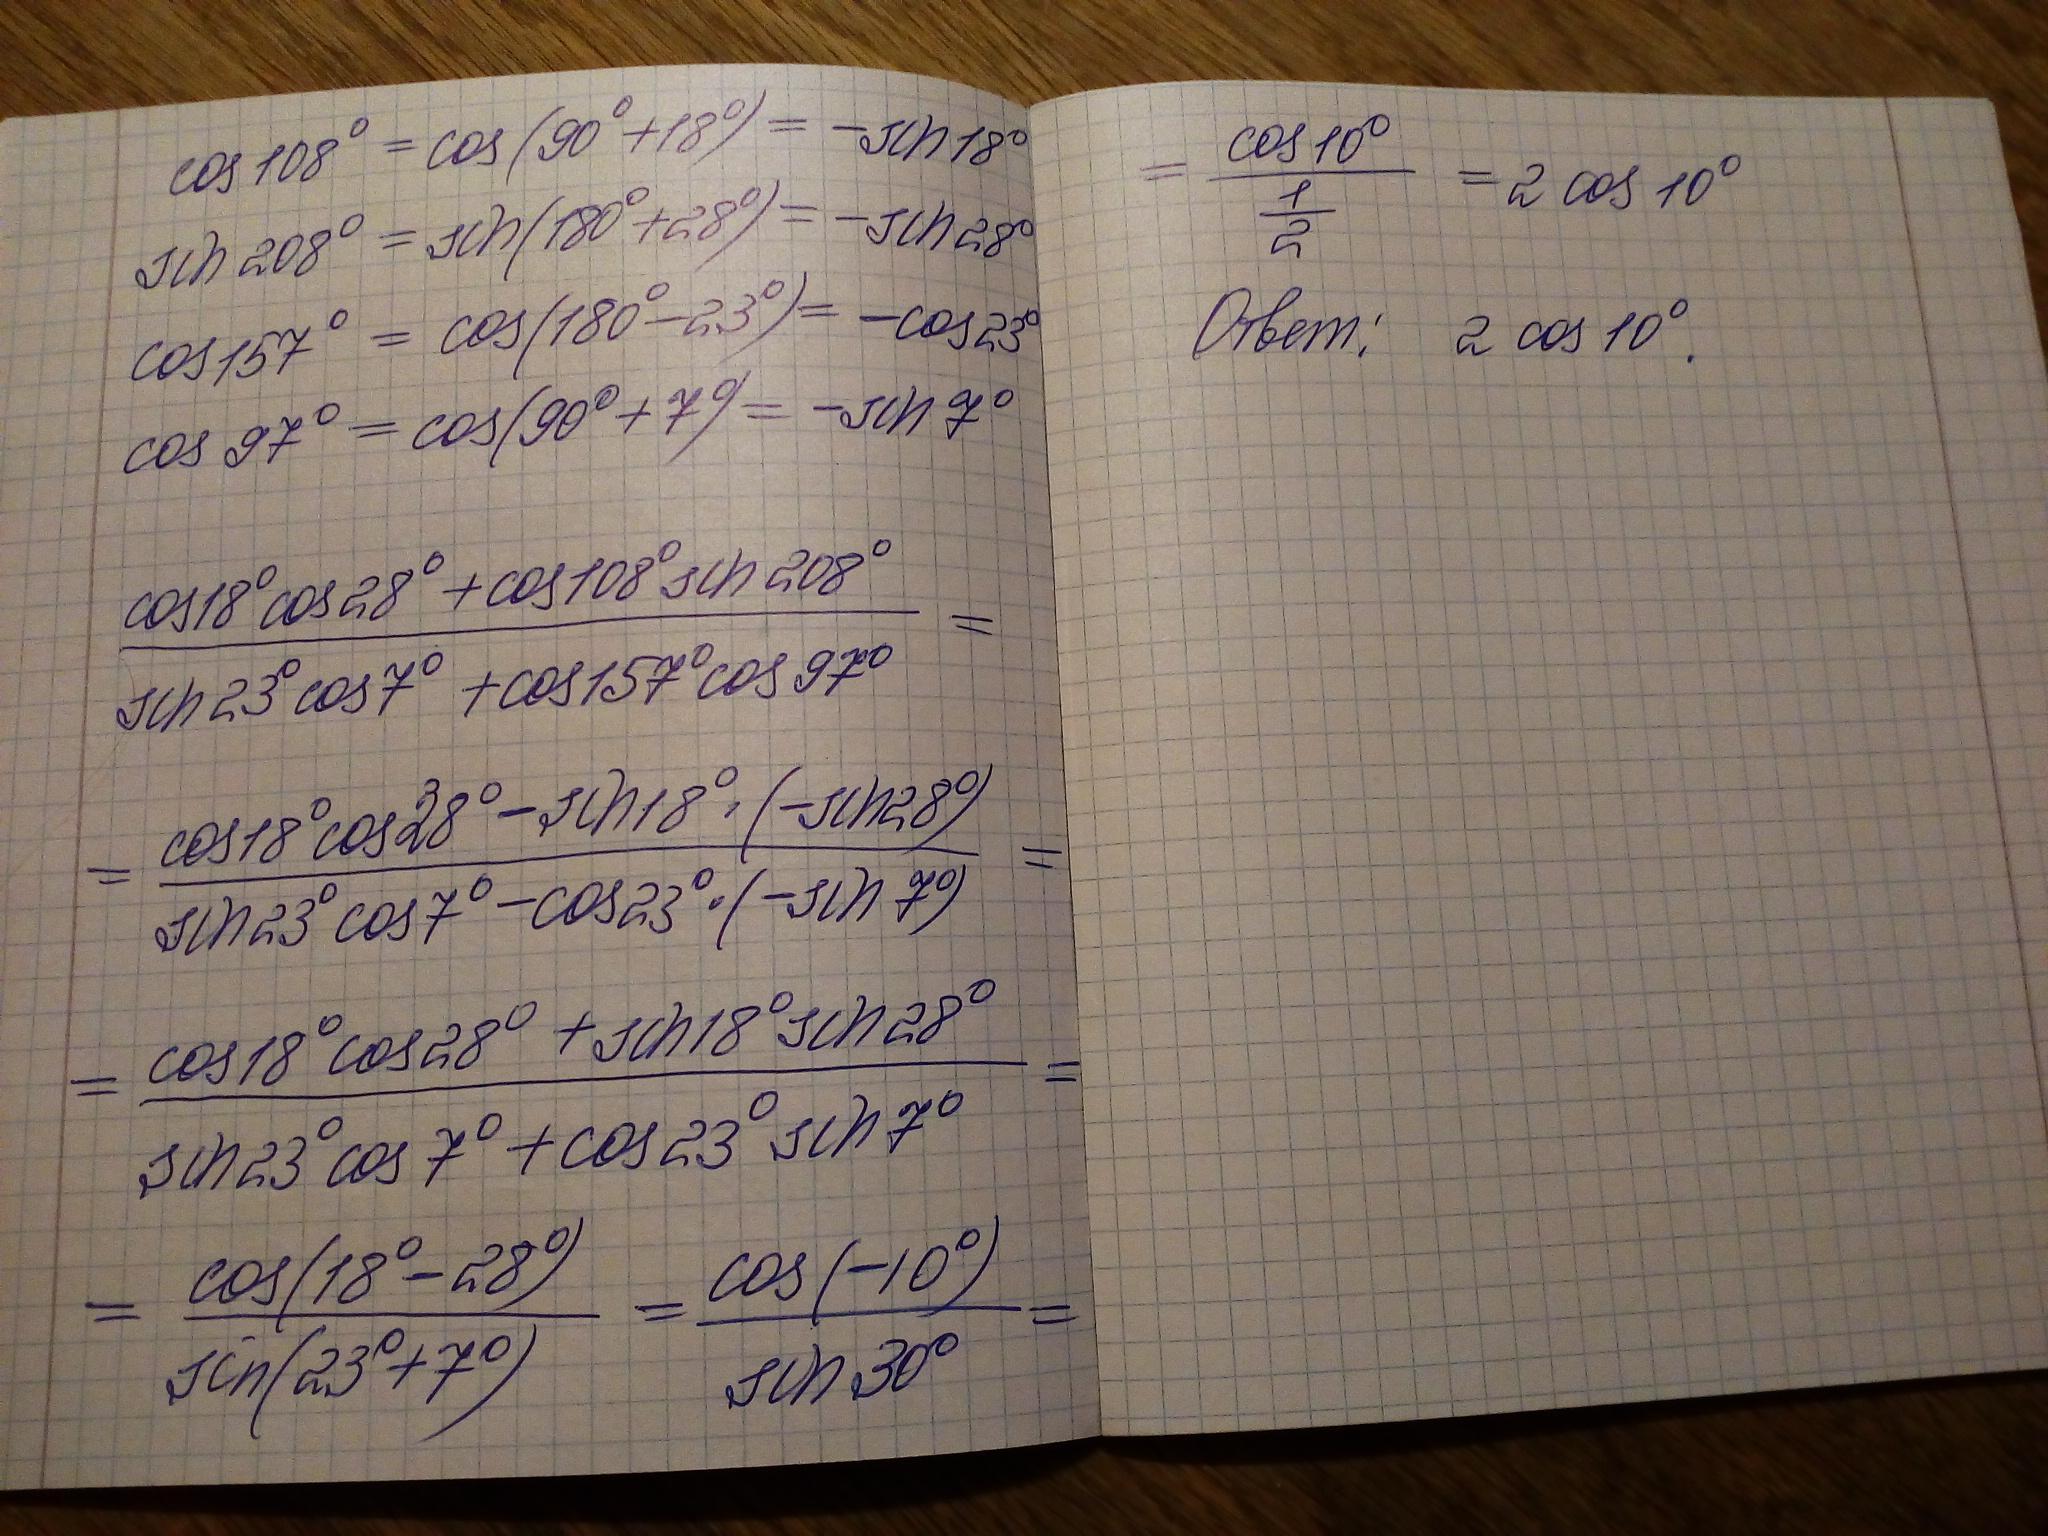 cos 108° = cos(90° + 18°) = -sin 18°
sin 208° = sin(180° + 28°) = -sin 28°
cos 157° = cos(180° - 23°) = -cos 23°
cos 97° = cos(90° + 7°) = -sin 7°
cos 18° cos 28° + cos 108° sin 208°
=
sin 23° cos 7° + cos 157° cos 97°
cos 18° cos 28° - sin 18° · (-sin 28°)
= =
sin 23° cos 7° - cos 23° · (-sin 7°)
cos 18° cos 28° + sin 18° sin 28°
= =
sin 23° cos 7° + cos 23° sin 7°
cos(18° - 28°) cos(-10°)
= = =
sin(23° + 7°) sin 30°
cos 10°
= = 2 cos 10°
1
2
Ответ: 2 cos 10°.